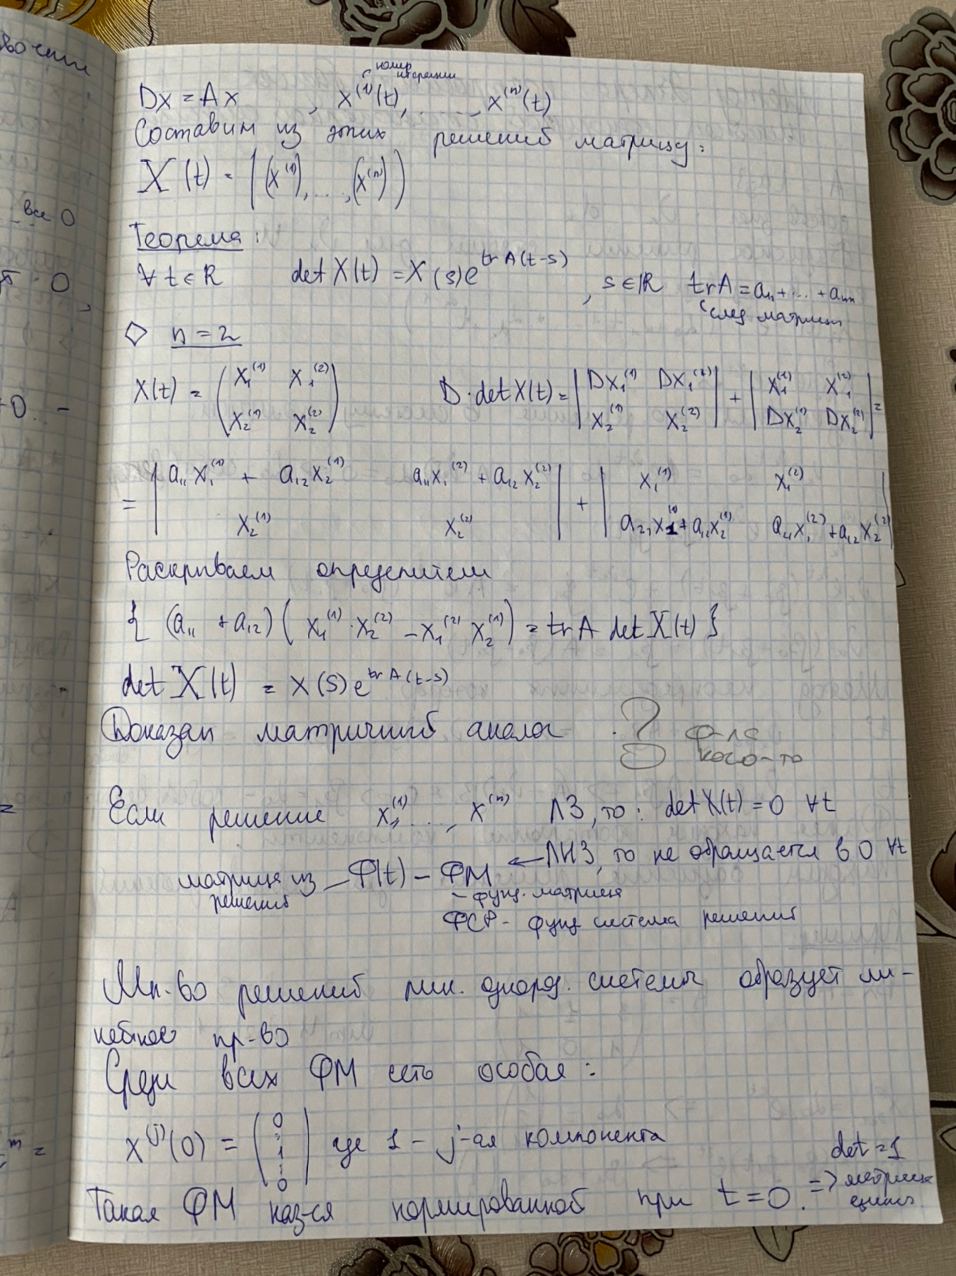 во чит
все 0
Dx = Ax , x⁽¹⁾(t), ..., x⁽ⁿ⁾(t)
номер
Составим из этих решений матрицу:
X(t) = ((x⁽¹⁾), ..., (x⁽ⁿ⁾))
Теорема:
∀ t ∈ R det X(t) = X(s)e^{tr A(t-s)} , s ∈ R tr A = a₁₁ + ... + aₙₙ
след матрицы
◇ n = 2
X(t) = (x₁⁽¹⁾ x₁⁽²⁾ / x₂⁽¹⁾ x₂⁽²⁾) D·det X(t) = |Dx₁⁽¹⁾ Dx₁⁽²⁾ / x₂⁽¹⁾ x₂⁽²⁾| + |x₁⁽¹⁾ x₁⁽²⁾ / Dx₂⁽¹⁾ Dx₂⁽²⁾| =
= |a₁₁x₁⁽¹⁾ + a₁₂x₂⁽¹⁾ a₁₁x₁⁽²⁾ + a₁₂x₂⁽²⁾ / x₂⁽¹⁾ x₂⁽²⁾| + |x₁⁽¹⁾ x₁⁽²⁾ / a₂₁x₁⁽¹⁾ + a₁₂x₂⁽¹⁾ a₂₁x₁⁽²⁾ + a₁₂x₂⁽²⁾|
Раскрываем определители
{ (a₁₁ + a₁₂)(x₁⁽¹⁾·x₂⁽²⁾ - x₁⁽²⁾x₂⁽¹⁾) = tr A det X(t) }
det X(t) = X(s)e^{tr A(t-s)}
Доказан матричный аналог . ? ф-ла
кого-то
Если решение x⁽¹⁾, ..., x⁽ⁿ⁾ ЛЗ, то: det X(t) = 0 ∀t
← ЛНЗ, то не обращается в 0 ∀t
матрица из решений – Ф(t) – ФМ
– фунд. матрица
ФСР - фунд система решений
Мн-во решений лин. однород. системы образует ли-
нейное пр-во
Среди всех ФМ есть особая:
x⁽ʲ⁾(0) = (0 ⋮ 1 ⋮ 0) где 1 - j-ая компонента
det = 1
Такая ФМ наз-ся нормированной при t = 0. => матрица
единич.